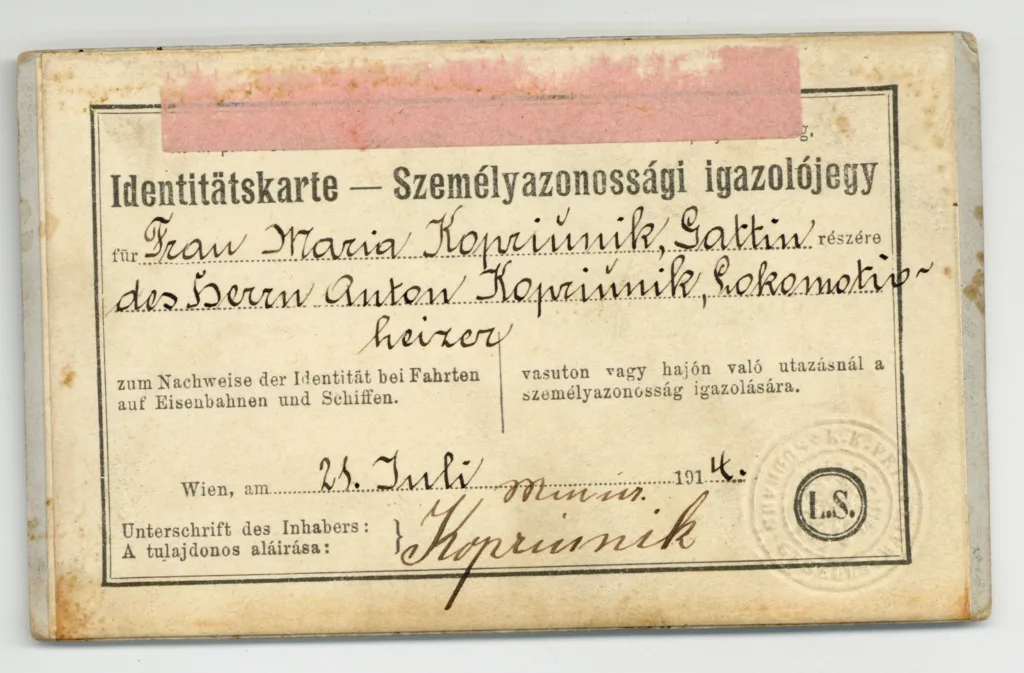 Identitätskarte — Személyazonossági igazolójegy
für Frau Maria Kopriunik, Gattin részére
des Herrn Anton Kopriunik, Lokomotiv-
heizer
zum Nachweise der Identität bei Fahrten
auf Eisenbahnen und Schiffen.
vasuton vagy hajón való utazásnál a
személyazonosság igazolására.
Wien, am 21. Juli 1914.
Unterschrift des Inhabers:
A tulajdonos aláirása:
Kopriunik
L.S.